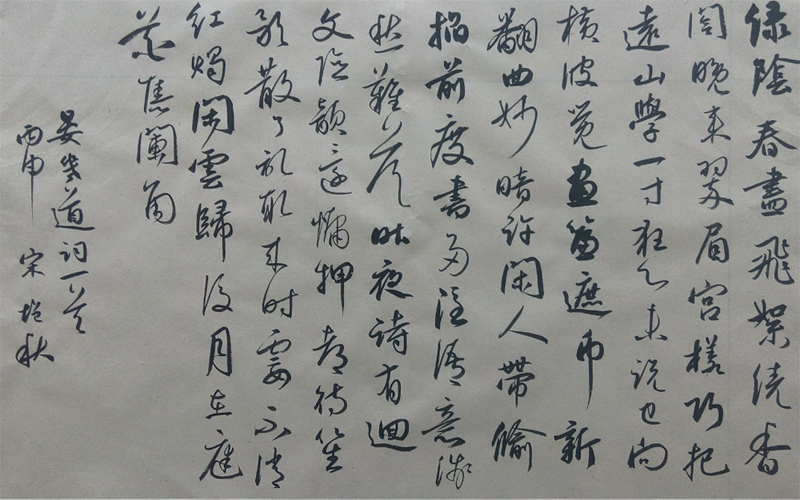 绿陰春盡飛絮绕香
閣晚来翠眉宫樣巧把
遠山學一寸狂心未说已向
横波觉畫簾遮帀新
翻曲妙暗许閑人帶偷
掐前度書多隐语意浅
愁難答昨夜詩有迴
文险韻还慵押都待笙
歌散了記取来时霎不消
红烛閑雲歸後月在庭
花舊闌角
晏幾道词一首
丙申 宋 秋